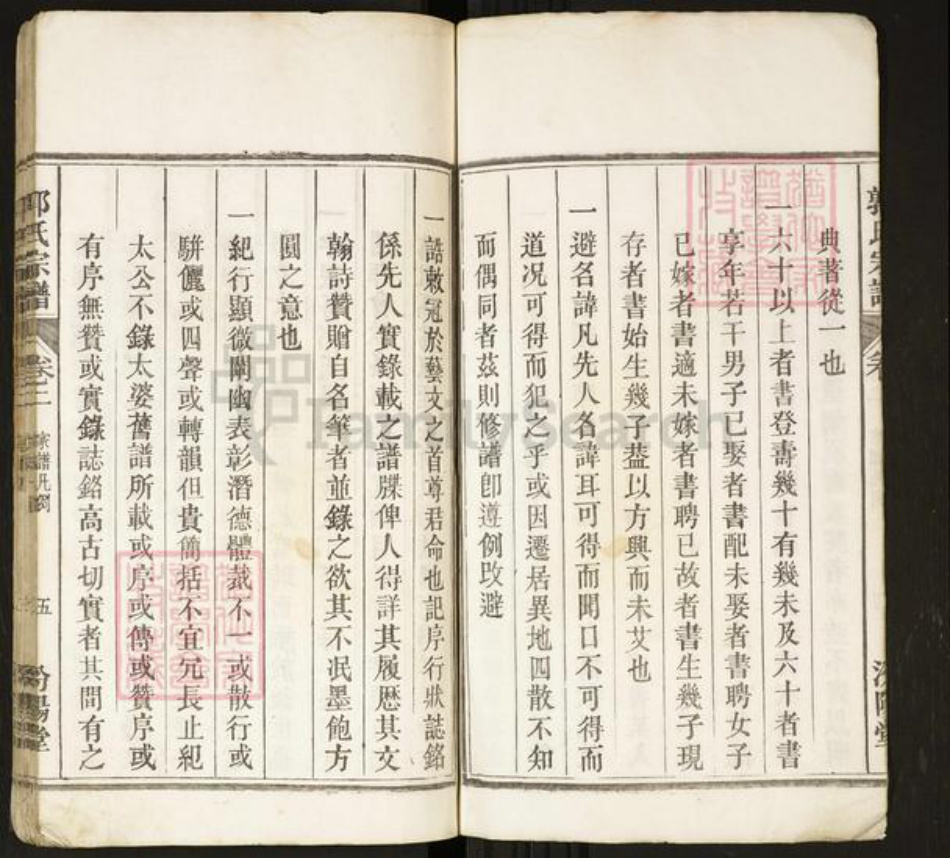 典著從一也
一六十以上者書登壽幾十有幾未及六十者書
享年若干男子已娶者書配未娶者書聘女子
已嫁者書適未嫁者書聘已故者書生幾子現
存者書始生幾子葢以方興而未艾也
一避名諱凡先人名諱耳可得而聞口不可得而
道况可得而犯之乎或因遷居異地四散不知
而偶同者茲則修譜卽遵例攺避
一誥敕冠於藝文之首尊君命也記序行狀誌銘
係先人實錄載之譜牒俾人得詳其履歴其文
翰詩贊贈自名筆者並錄之欲其不泯墨飽方
圓之意也
一紀行顯微闡幽表彰潛德體裁不一或散行或
駢儷或四聲或轉韻但貴簡括不宜冗長止紀
太公不錄太婆舊譜所載或序或傳或贊序或
有序無贊或實錄誌銘高古切實者其間有之
郭氏宗譜
卷二
五
汾陽堂
FamilySearch